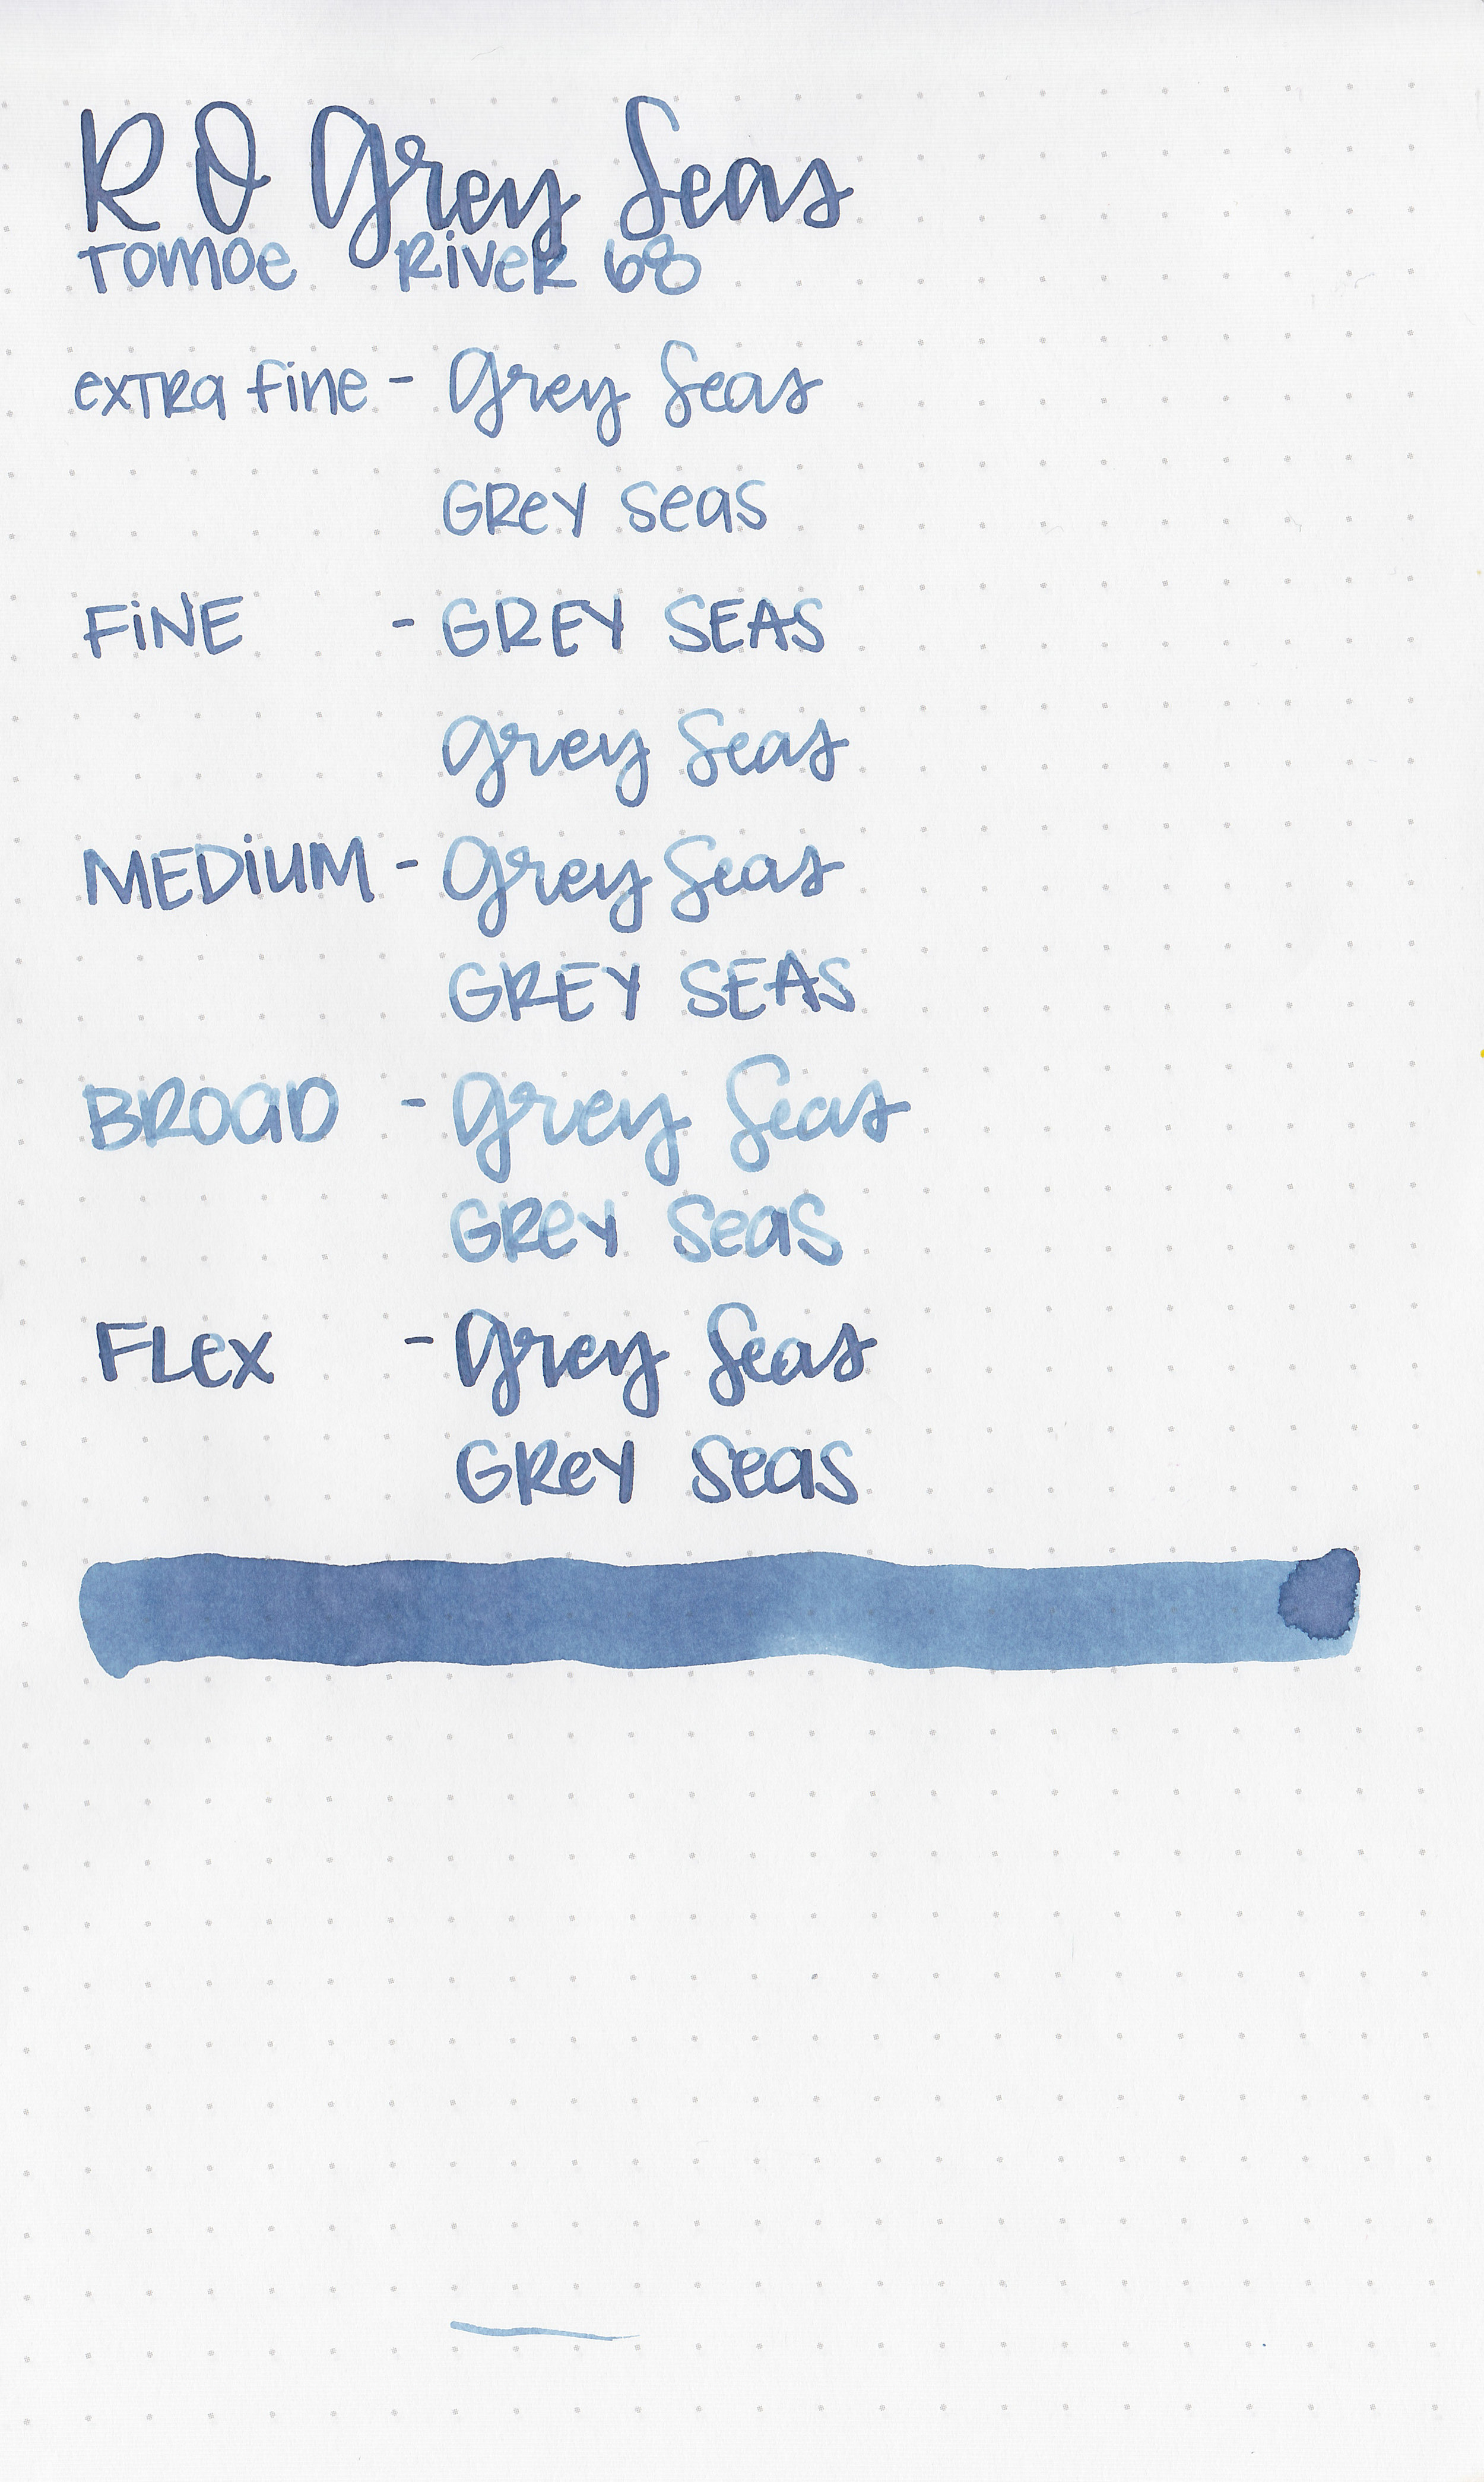 R O Grey Seas
Tomoe River 68
extra fine - Grey Seas
Grey Seas
FiNE - GREY SEAS
Grey Seas
MEDiUM - Grey Seas
GREY SEAS
BROAD - Grey Seas
GReY SeaS
FLex - Grey Seas
GReY SeaS